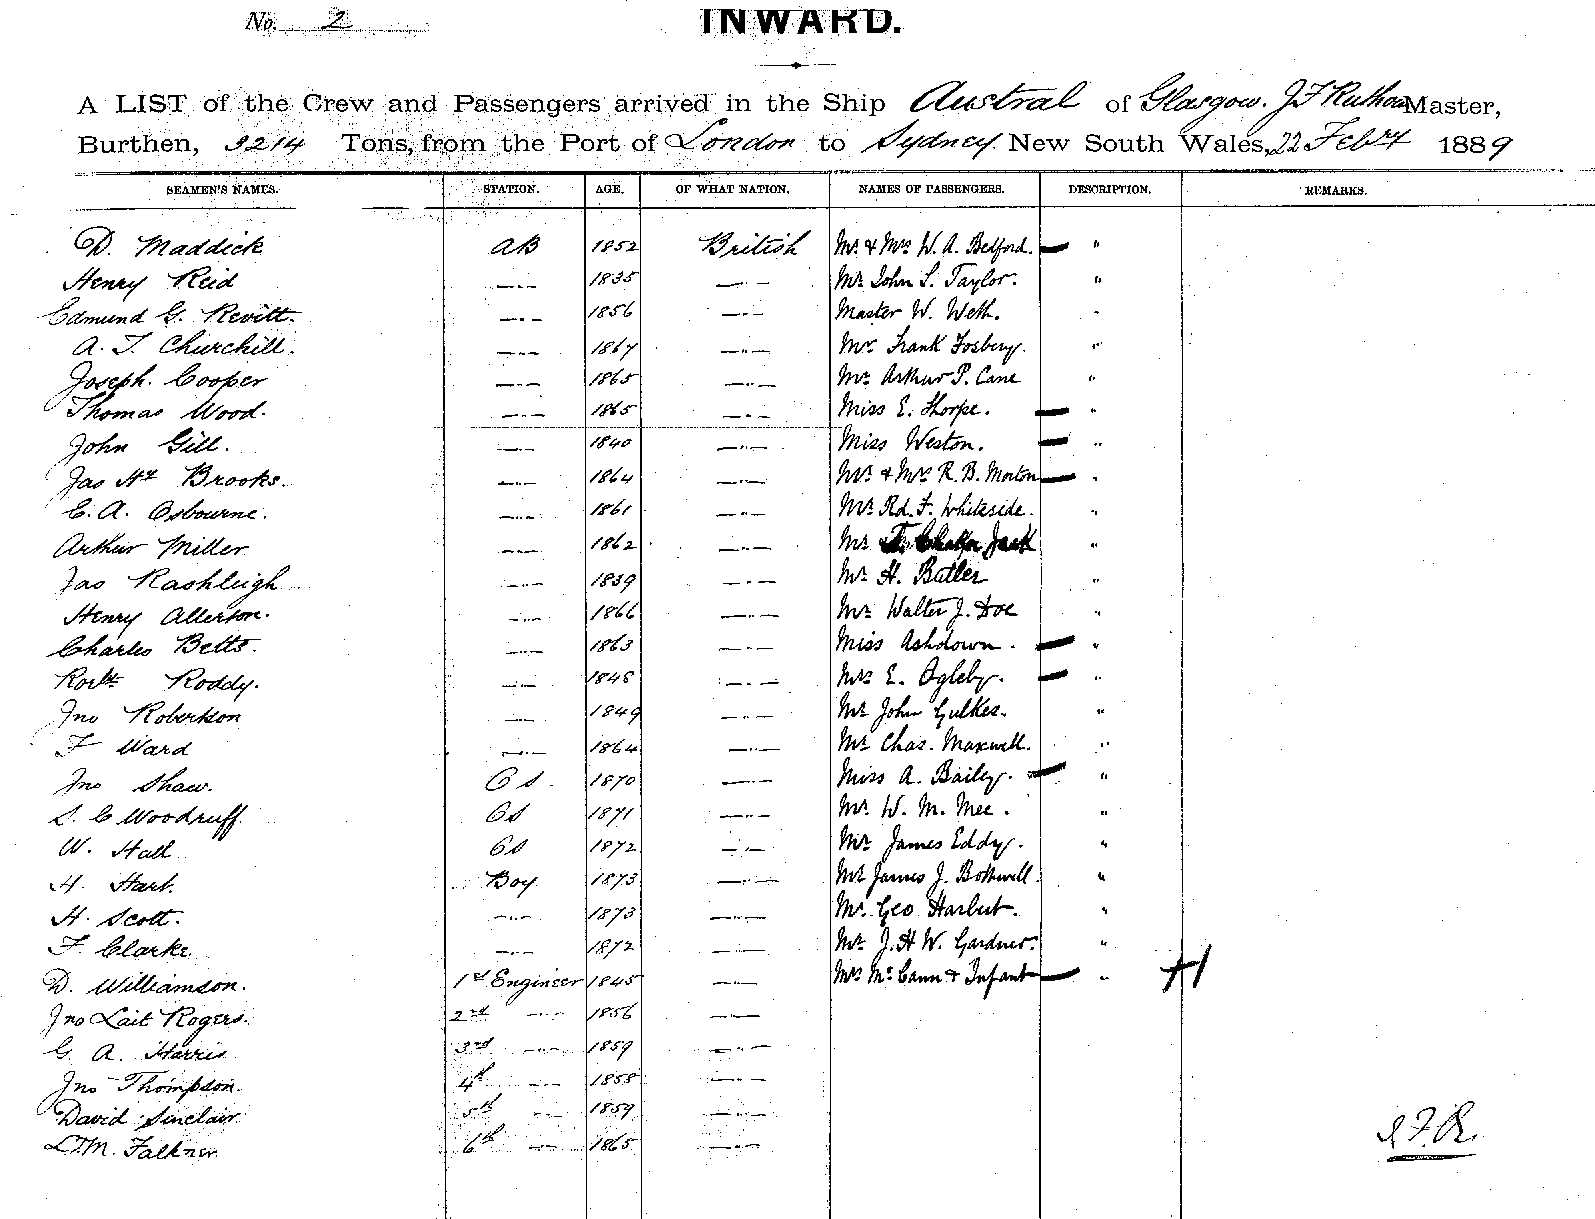 No. 2
INWARD.
A LIST of the Crew and Passengers arrived in the Ship Austral of Glasgow. J F Master,
Burthen, 3214 Tons, from the Port of London to Sydney New South Wales, 22 Feby 1889
SEAMEN'S NAMES. STATION. AGE. OF WHAT NATION. NAMES OF PASSENGERS. DESCRIPTION. REMARKS.
D. Maddick AB 1852 British Mr & Mrs W. A. Bedford. — "
Henry Reid —"— 1835 —"— Mr John S. Taylor. "
Edmund G. Revitt. —"— 1856 —"— Master W. Weth. "
A. T. Churchill. —"— 1867 —"— Mr Frank Fosbery. "
Joseph Cooper —"— 1865 —"— Mr Arthur P. Cane "
Thomas Wood. —"— 1865 —"— Miss E. Thorpe. — "
John Gill. —"— 1840 —"— Miss Weston. — "
Jas Hy Brooks. —"— 1864 —"— Mr & Mrs R. B. Morton — "
C. A. Osbourne. —"— 1861 —"— Mr Rd. F. Whiteside. "
Arthur Miller —"— 1862 —"— Mr Jack "
Jas Rashleigh —"— 1839 —"— Mr H. Butler "
Henry Allerton. —"— 1866 —"— Mr Walter J. Doe "
Charles Betts. —"— 1863 —"— Miss Ashdown. — "
Robt Roddy. —"— 1848 —"— Mrs E. Ogleby. — "
Jno Robertson —"— 1849 —"— Mr John Gulkes. "
F Ward —"— 1864 —"— Mr Chas. Maxwell. "
Jno Shaw. OS. 1870 —"— Miss A. Bailey. — "
S. C Woodruff. OS 1871 —"— Mr W. M. Mee. "
W. Hall OS 1872 —"— Mr James Eddy. "
H. Hart. Boy 1873 —"— Mr James J. Bothwell. "
H. Scott. —"— 1873 —"— Mr Geo Harbert. "
F. Clarke —"— 1872 —"— Mr J. H W. Gardner. "
D. Williamson. 1st Engineer 1845 —"— Mrs McCann & Infant — "
Jno Lait Rogers. 2nd —"— 1856 —"—
G. A. Harris 3rd —"— 1859 —"—
Jno Thompson. 4th —"— 1858 —"—
David Sinclair 5th —"— 1859 —"—
M. Falkner 6th —"— 1865 —"—
J. F. R.